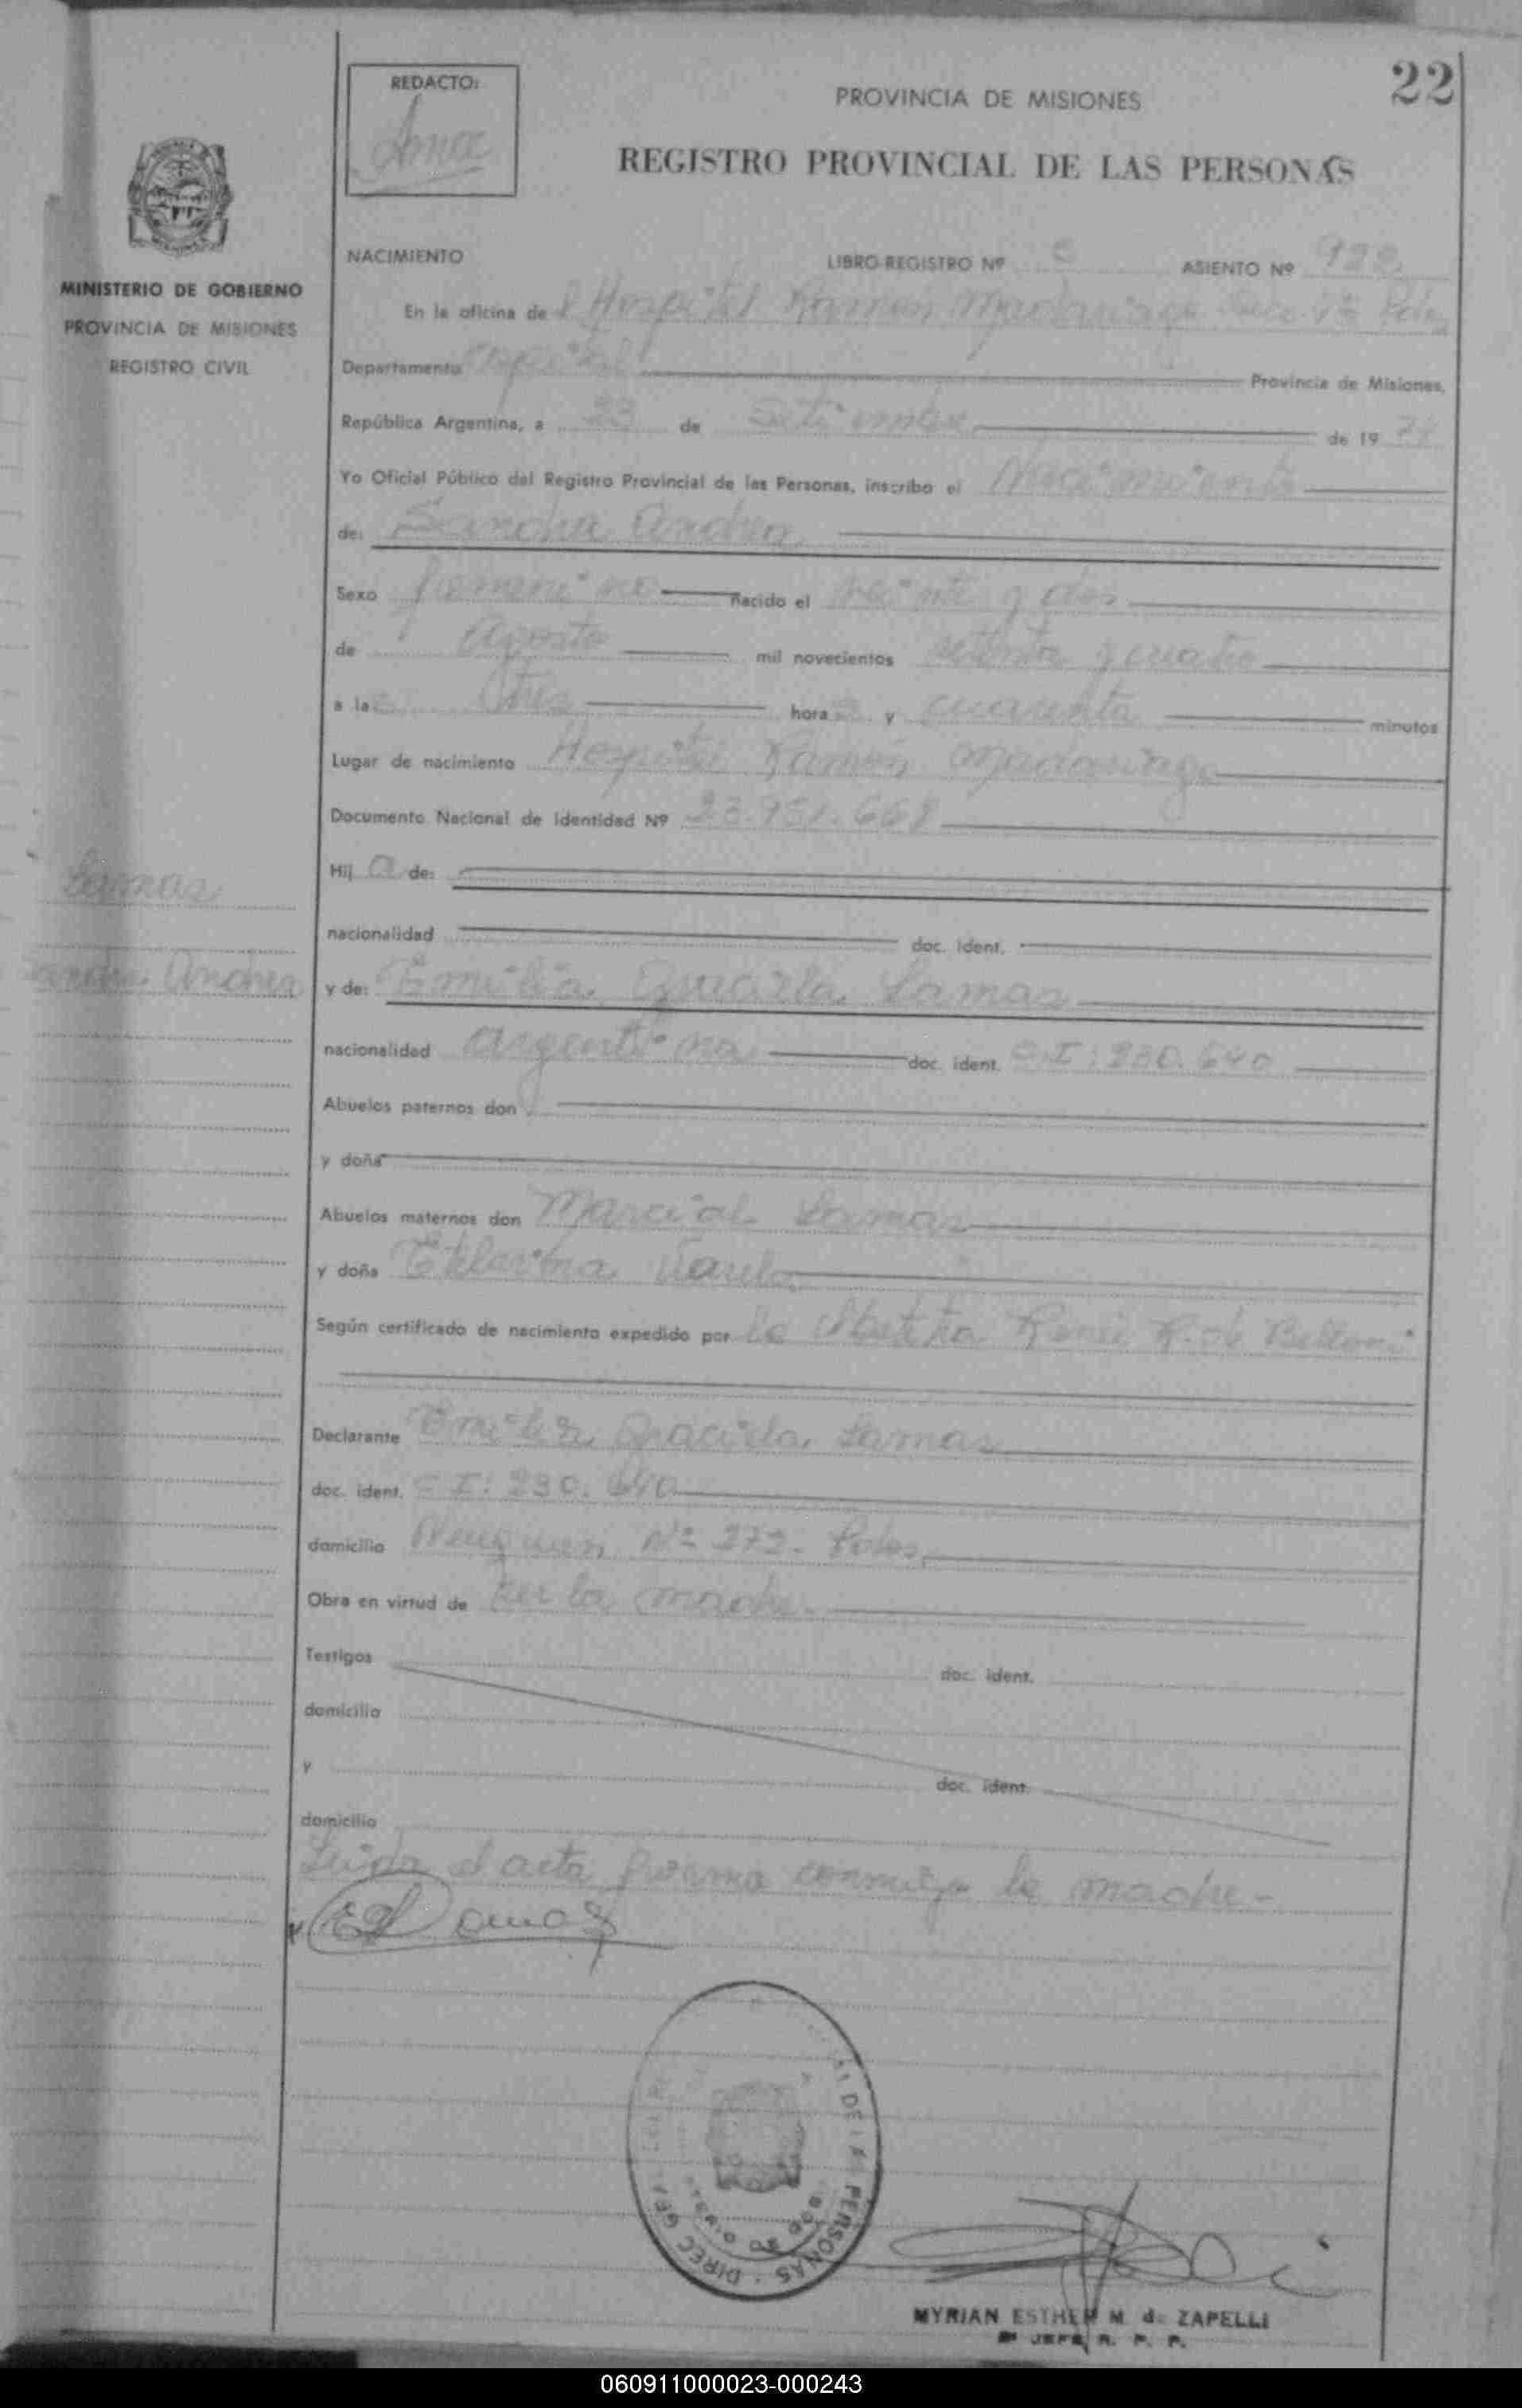 22
REDACTO:
PROVINCIA DE MISIONES
REGISTRO PROVINCIAL DE LAS PERSONAS
MINISTERIO DE GOBIERNO
PROVINCIA DE MISIONES
REGISTRO CIVIL
NACIMIENTO LIBRO REGISTRO Nº ASIENTO Nº
En la oficina del Hospital Ramon Madariaga
Departamento Capital Provincia de Misiones,
República Argentina, a 23 de Setiembre de 1974
Yo Oficial Público del Registro Provincial de las Personas, inscribo el Nacimiento
de: Sandra Andrea
Sexo femenino nacido el veinte y dos
de Agosto mil novecientos setenta y cuatro
a las tres horas y cuarenta minutos
Lugar de nacimiento Hospital Ramón Madariaga
Documento Nacional de Identidad Nº 23.951.668
Hija de:
Lamas
nacionalidad doc. ident.
Sandra Andrea
y de: Emilia Lamas
nacionalidad argentina doc. ident. C.I: 230.640
Abuelos paternos don
y doña
Abuelos maternos don Marcial Lamas
y doña Varela
Según certificado de nacimiento expedido por la Obstetra R. de Belloni
Declarante Emilia Lamas
doc. ident. C I: 230.640
domicilio Neuquen Nº 272. Pdas
Obra en virtud de ser la madre.
Testigos doc. ident.
domicilio
y doc. ident.
domicilio
Leida el acta firma conmigo la madre-
DE LAS PERSONAS - DIREC GEN
MYRIAN ESTHER M. de ZAPELLI
JEFE R. P. P.
060911000023-000243